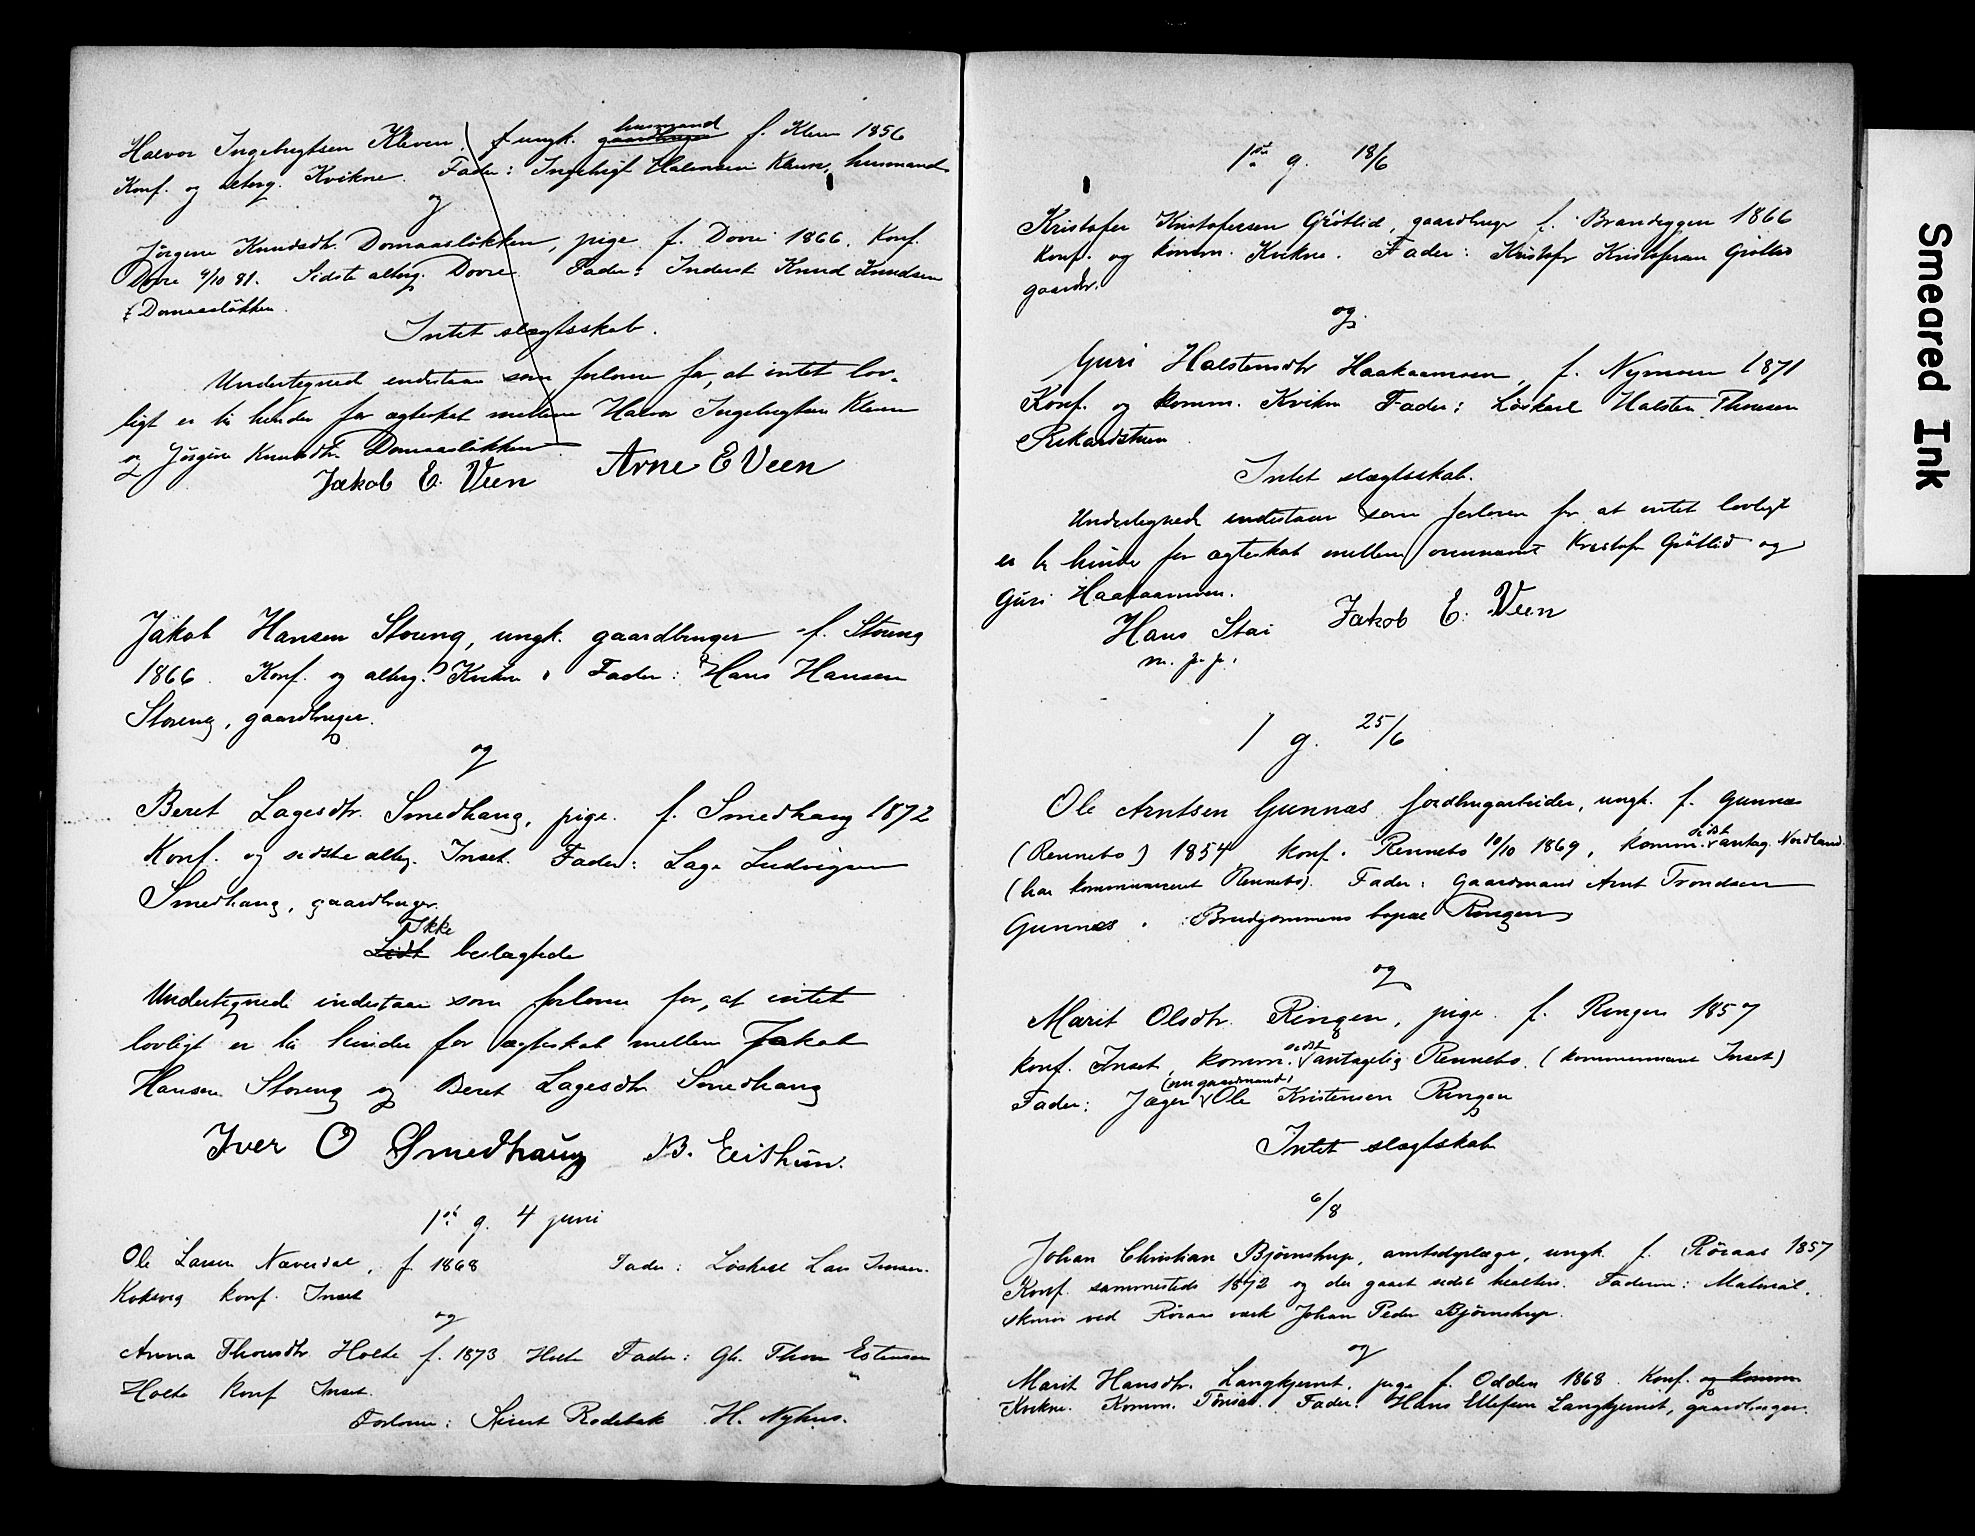 Halvor Ingebrigtsen Kleven, f ungk. husmand gaardbruger f. Kleven 1856
Konf. og alterg. Kvikne. Fader: Ingebrigt Halvorsen Kleven, husmand
og
Jørgine Knudsdtr. Domaasløkken, pige f. Dovre 1866. Konf.
Dovre 4/10 81. Sidste alterg. Dovre. Fader: Inderst Knud Knudsen
Domaasløkken.
Intet slægtsskab.
Undertegnede indestaar som forlovere for, at intet lov-
ligt er til hinder for ægteskab mellem Halvor Ingebrigtsen Kleven
og Jørgine Knudsdtr. Domaasløkken
Jakob E. Veen Arne E Veen
Jakob Hansen Storeng, ungk. gaardbruger f. Storeng
1866. Konf. og alterg. Kvikne. Fader: Hans Hansen
Storeng, gaardbruger.
og
Beret Lagesdtr. Smedhaug, pige. f. Smedhaug 1872
Konf. og sidste alterg. Inset. Fader: Lage Ludvigsen
Smedhaug, gaardbruger.
Ikke
Lidt beslægtede
Undertegnede indestaar som forlovere for, at intet
lovligt er til hinder for ægteskab mellem Jakob
Hansen Storeng og Beret Lagesdtr Smedhaug
Iver O Smedhaug B. Eithun.
1ste g. 4 juni
Ole Larsen Næverdal, f. 1868 Fader: Løskarl Lars
konf. Inset
og
Anna Thoresdtr Holte f. 1873 Holte Fader: Gb. Thore Estensen
Holte konf Inset.
Forlovere: Sivert Rodebak H. Nyhus.
1ste g. 18/6
Kristofer Kristofersen Grøtlid, gaardbruger f. Brandeggen 1866
Konf. og komm. Kvikne. Fader: Kristofer Kristofersen Grøtlid
gaardbr.
og
Guri Halstensdtr Haakaamoen, f. Nymoen 1871
Konf. og komm. Kvikne Fader: Løskarl Halsten Thoresen
Rekardstuen
Intet slægtsskab.
Undertegnede indestaar som forlovere for at intet lovligt
er til hinder for ægteskab mellem ovennævnte Kristofer Grøtlid og
Guri Haakaamoen.
Hans Stai Jakob E. Veen
m. p. p.
1 g. 25/6
Ole Arntsen Gunnæs jordbrugarbeider, ungk. f. Gunnæs
(Rennebo) 1854 konf. Rennebo 10/10 1869, komm. sidst antag. Nordland
(har kommuniceret Rennebo). Fader: Gaardmand Arnt Trondsen
Gunnæs. Brudgommens bopæl Ringen
og
Marit Olsdtr. Ringen, pige. f. Ringen 1857
konf. Inset, komm. sidst antagelig Rennebo. (kommunicerer Inset)
(nu gaardmand)
Fader: Jæger Ole Kristensen Ringen
Intet slægtskab
6/8
Johan Christian Bjørnstrup, amtsdyrlæge, ungk. f. Røraas 1857
Konf. sammesteds 1872 og der gaaet sidst Faderen: Material-
skriver ved Røraas værk Johan Peder Bjørnstrup.
og
Marit Hansdtr. Langkjernet, pige f. Odden 1868. Konf. og komm.
Kvikne. Komm. Tønset. Fader: Hans Ellefsen Langkjernet, gaardbruger.
Smeared Ink